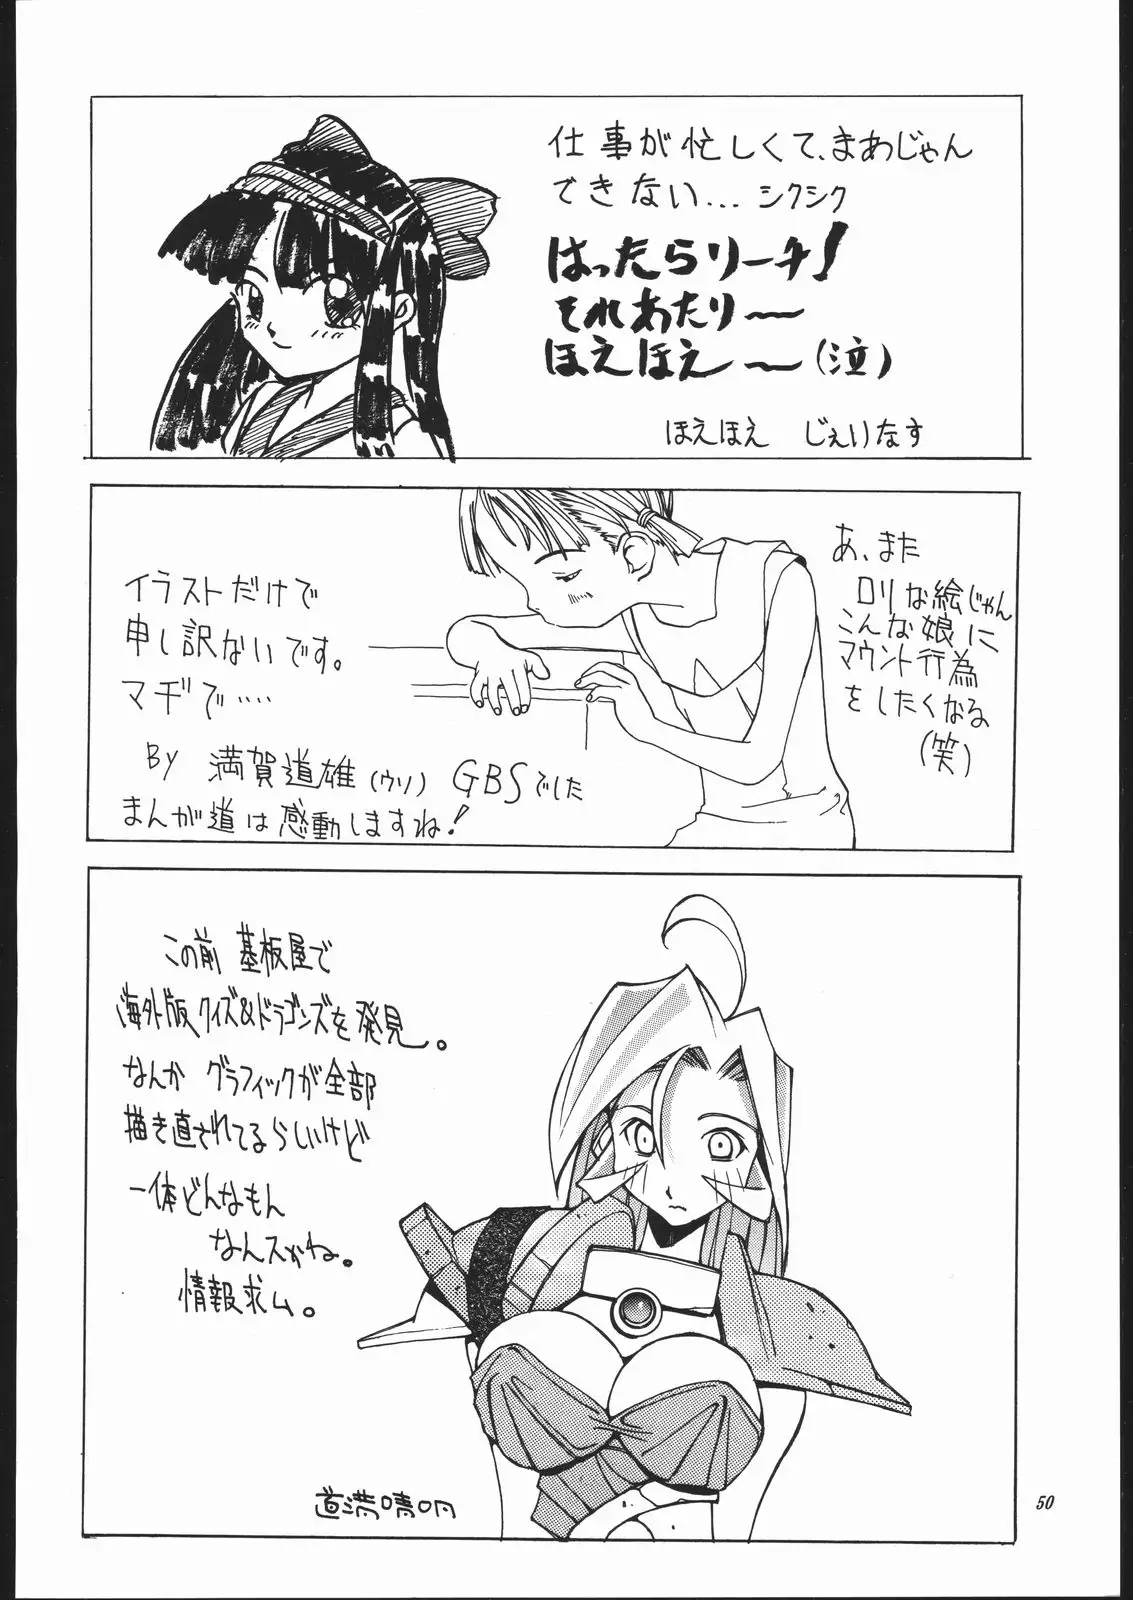 仕事が忙しくて、まあじゃん
できない...シクシク
はったらリーチ!
それあたり〜
ほえほえ〜(泣)
ほえほえ じぇりなす
イラストだけで
申し訳ないです。
マヂで‥‥
By 満賀道雄(ウソ) GBSでした
まんが道は感動しますね!
あ、また
ロリな絵じゃん
こんな娘に
マウント行為
をしたくなる
(笑)
この前 基板屋で
海外版クイズ&ドラゴンズを発見。
なんか グラフィックが全部
描き直されてるらしいけど
一体どんなもん
なんスかね。
情報求ム。
道満晴明
50